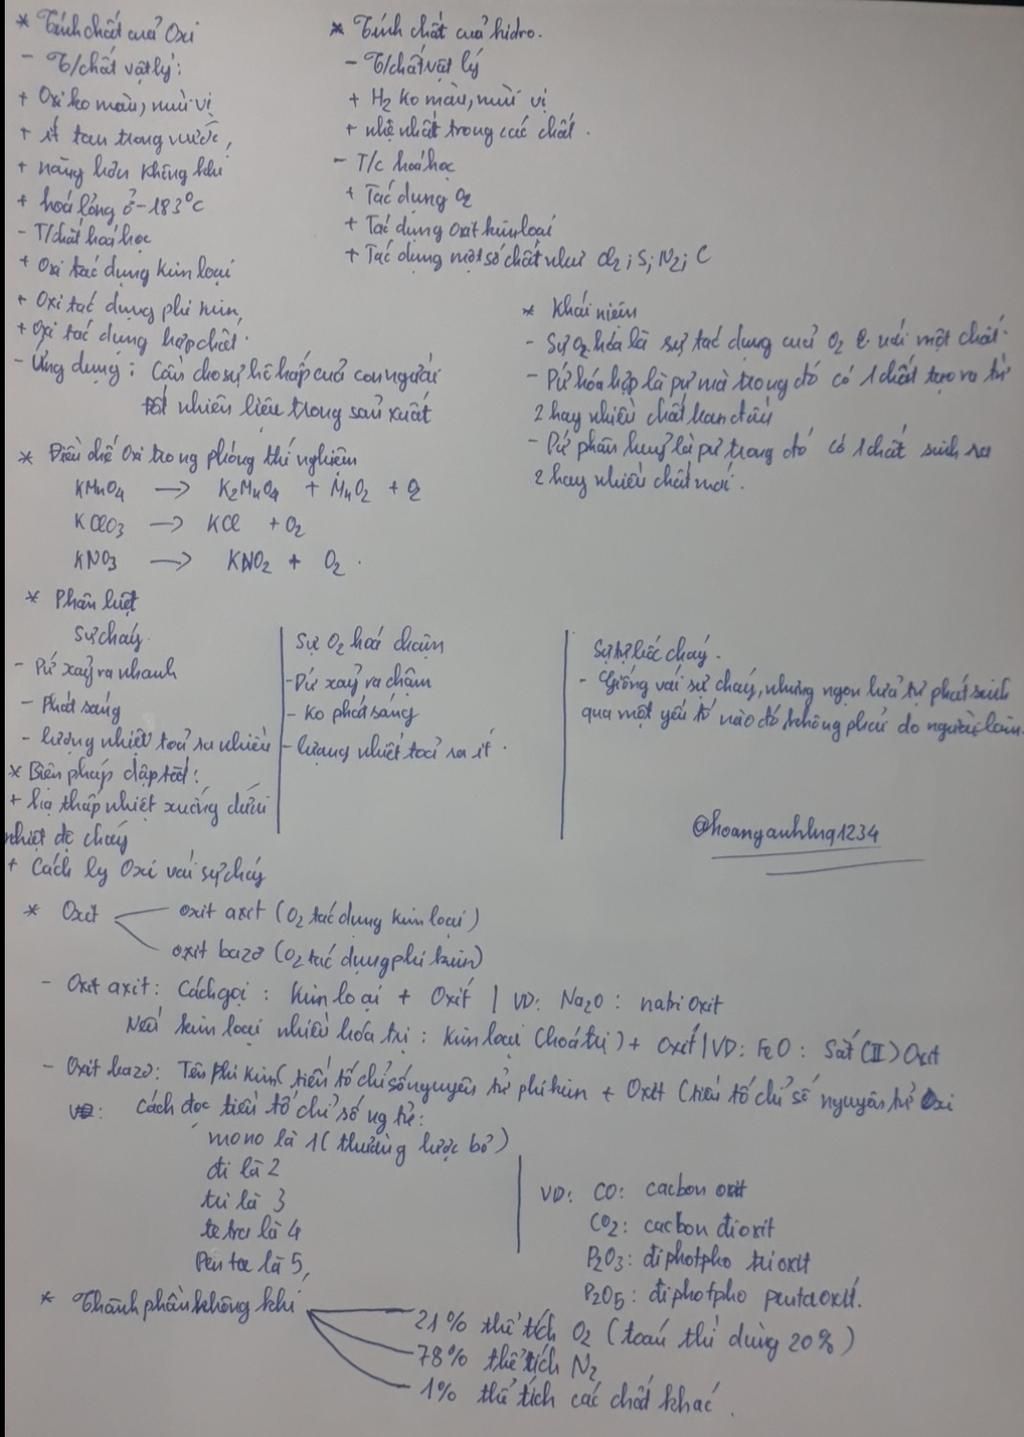 * Tính chất của Oxi
- T/chất vật lý:
+ Oxi ko màu, mùi vị
+ ít tan trong nước,
+ nặng hơn không khí
+ hoá lỏng ở -183°C
- T/chất hoá học
+ Oxi tác dụng kim loại
+ Oxi tác dụng phi kim,
+ Oxi tác dụng hợp chất.
- Ứng dụng: Cần cho sự hô hấp của con người
đốt nhiên liệu trong sản xuất
* Tính chất của hidro.
- T/chất vật lý
+ H2 ko màu, mùi vị
+ nhẹ nhất trong các chất.
- T/c hoá học
+ Tác dụng O2
+ Tác dụng oxit kim loại
+ Tác dụng một số chất như Cl2; S; N2; C
* Khái niệm
- Sự O2 hóa là sự tác dụng của O2 với một chất.
- Pứ hóa hợp là pứ mà trong đó có 1 chất tạo ra từ
2 hay nhiều chất ban đầu
- Pứ phân huỷ là pứ trong đó có 1 chất sinh ra
2 hay nhiều chất mới.
* Điều chế Oxi trong phòng thí nghiệm
KMnO4 → K2MnO4 + MnO2 + O2
KClO3 → KCl + O2
KNO3 → KNO2 + O2.
* Phân biệt
Sự cháy.
- Pứ xảy ra nhanh
- Phát sáng
- lượng nhiệt toả ra nhiều
Sự O2 hoá chậm
- Pứ xảy ra chậm
- Ko phát sáng
- lượng nhiệt toả ra ít.
Sự tự bốc cháy.
- Giống với sự cháy, nhưng ngọn lửa tự phát sinh
qua một yếu tố nào đó, không phải do người làm.
* Biện pháp dập tắt:
+ hạ thấp nhiệt xuống dưới
nhiệt độ cháy
+ Cách ly Oxi với sự cháy
@hoanganhlnq1234
* Oxit
oxit axit (O2 tác dụng kim loại)
oxit bazơ (O2 tác dụng phi kim)
- Oxit axit: Cách gọi: Kim loại + Oxit | VD: Na2O: natri oxit
Nếu kim loại nhiều hóa trị: kim loại (hoá trị) + oxit | VD: FeO: Sắt (II) Oxit
- Oxit bazơ: Tên Phi kim (tiền tố chỉ số nguyên tử phi kim + Oxit (tiền tố chỉ số nguyên tử Oxi
Cách đọc tiền tố chỉ số ng tử:
mono là 1 (thường lược bỏ)
đi là 2
tri là 3
tetra là 4
Penta là 5,
VD: CO: cacbon oxit
CO2: cacbon đioxit
P2O3: điphotpho trioxit
P2O5: điphotpho pentaoxit.
* Thành phần không khí
21% thể tích O2 (toán thì dùng 20%)
78% thể tích N2
1% thể tích các chất khác.